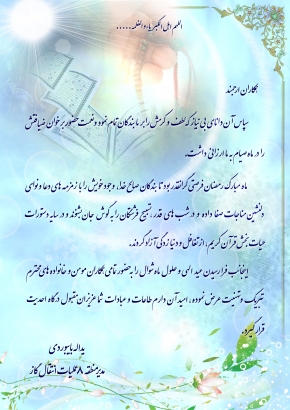 اللهم اهل الکبریاء و العظمه.....
همکاران ارجمند
سپاس آن دانای بی نیاز که لطف و کرمش را بر ما بندگان تمام نمود و نعمت حضور بر خوان ضیافتش
را در ماه صیام به ما ارزانی داشت.
ماه مبارک رمضان فرصتی گرانقدر بود تا بندگان صالح خدا، وجود خویش را با زمزمه های دعا و نوای
دلنشین مناجات صفا داده و در شب های قدر، تسبیح فرشتگان را به گوش جان بشنوند و در سایه دستورات
حیات بخش قرآن کریم، از تغافل و دنیا زدگی آزاد گردند.
اینجانب فرا رسیدن عید الهی و حلول ماه شوال را به حضور تمامی همکاران مومن و خانواده های محترم
تبریک و تهنیت عرض نموده، امید آن دارم طاعات و عبادات شما عزیزان مقبول درگاه احدیت
قرار گیرد.
یداله بایبوردی
مدیر منطقه ۸ عملیات انتقال گاز